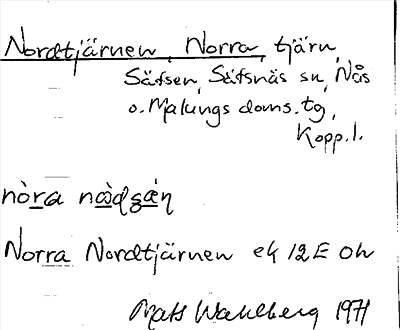 Nordtjärnen, Norra, tjärn,
Säfsen, Säfsnäs sn, Nås
o. Malungs doms. tg,
Kopp. l.
nòra nàdʒæ̀n
Norra Nordtjärnen ek 12E 0h
Mats Wahlberg 1971